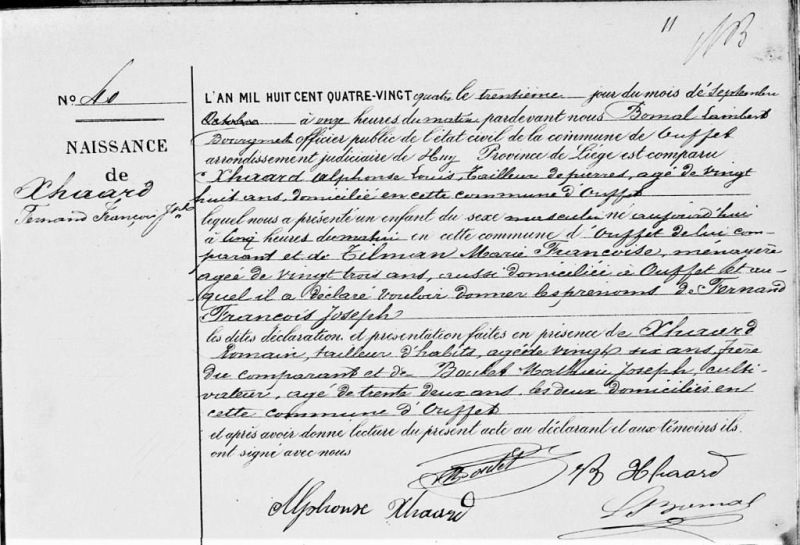 11
N° 40
NAISSANCE
de
Xhaard
Fernand François Jph
L'AN MIL HUIT CENT QUATRE-VINGT quatre le trentième jour du mois de Septembre
Octobre à onze heures du matin pardevant nous Bomal Lambert
officier public de l'état civil de la commune de Ouffet
arrondissement judiciaire de Huy Province de Liège est comparu
Xhaard Alphonse Louis, tailleur de pierres, agé de vingt
huit ans, domicilié en cette commune d'Ouffet
lequel nous a présenté un enfant du sexe masculin né aujourd'hui
à cinq heures du matin en cette commune d'Ouffet de lui com-
parant et de Tilman Marie Françoise, ménagère
agée de vingt trois ans, aussi domiciliée à Ouffet et au-
quel il a déclaré vouloir donner les prénoms de Fernand
François Joseph
les dites déclaration et présentation faites en présence de Xhaard
Romain, tailleur d'habits, agé de vingt six ans, frère
du comparant et de Boulet Mathieu Joseph, culti-
vateur, agé de trente deux ans, les deux domiciliés en
cette commune d'Ouffet
et après avoir donné lecture du présent acte au déclarant et aux témoins ils
ont signé avec nous
Boulet
R Xhaard
Alphonse Xhaard
L Bomal